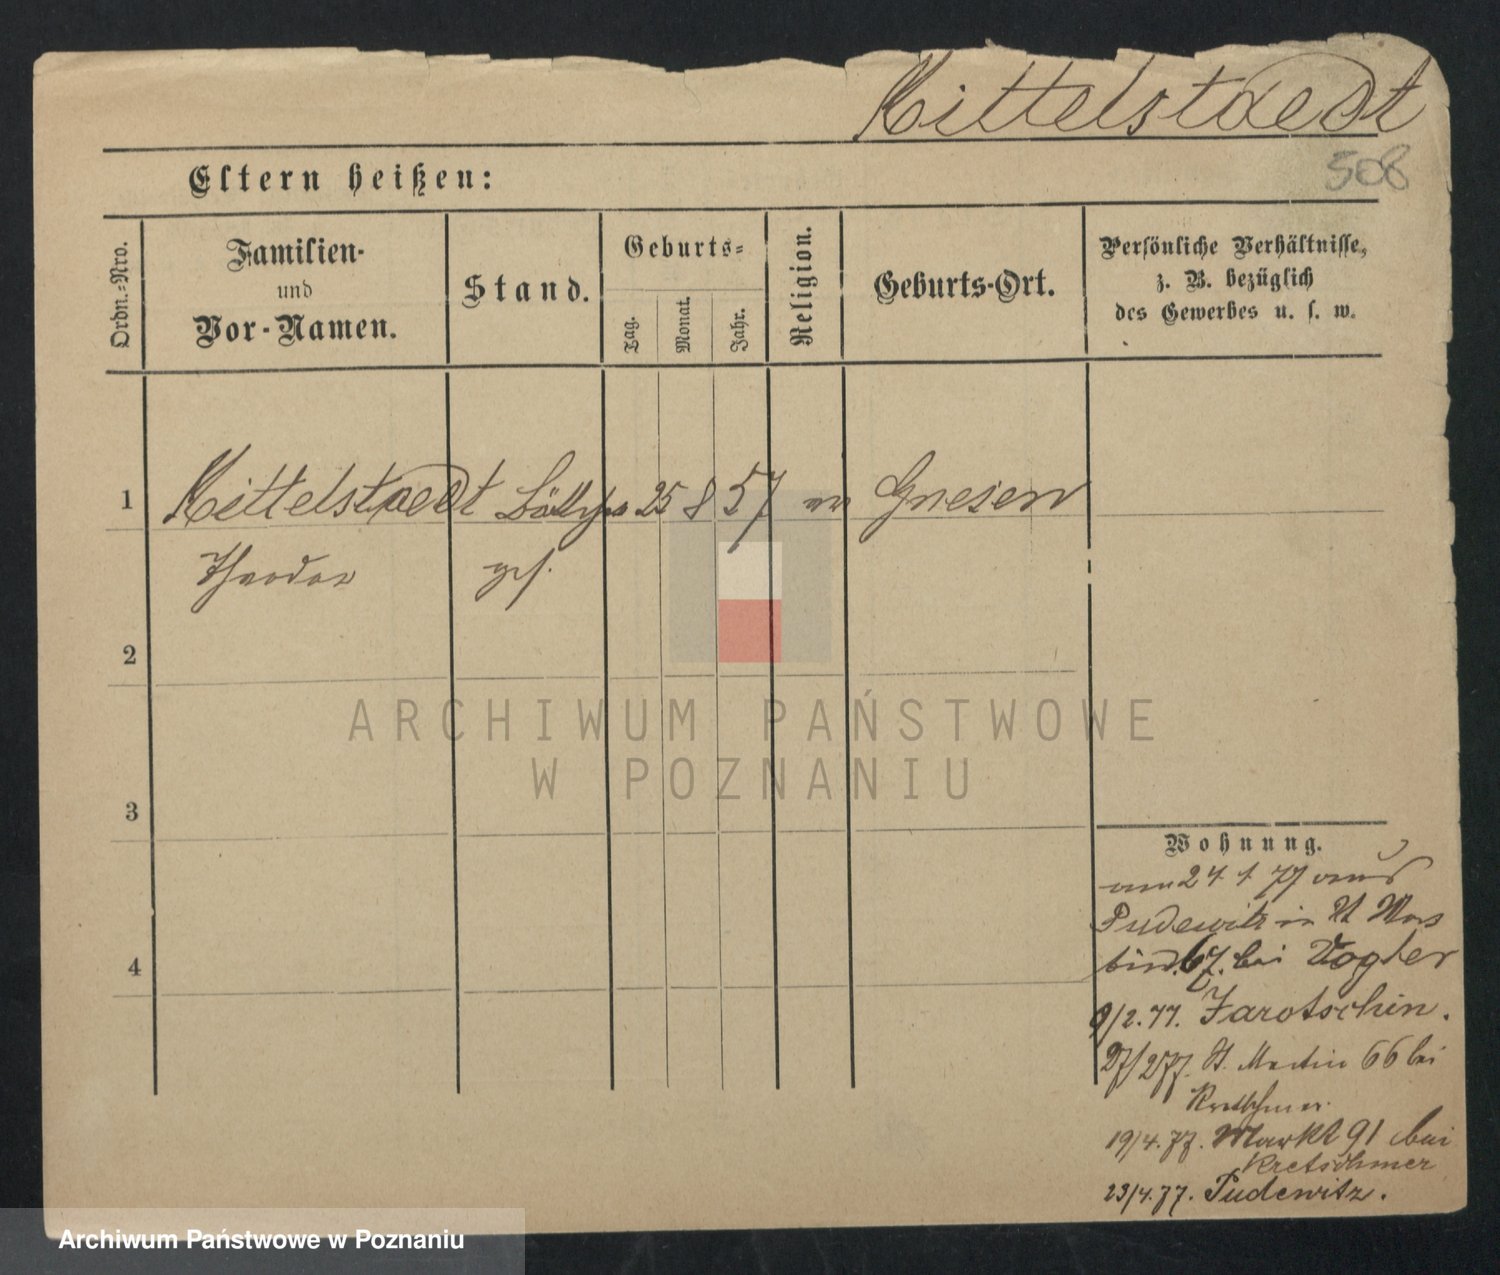 Mittelstaedt
508
Eltern heißen:
Ordn.-Nro.
Familien-
und
Vor-Namen.
Stand.
Geburts-
Tag.
Monat.
Jahr.
Religion.
Geburts-Ort.
Persönliche Verhältnisse,
z. B. bezüglich
des Gewerbes u. s. w.
1 Mittelstaedt Böttcher 25 8 57 ev Gnesen
Theodor ges.
2
3
4
Wohnung.
am 24 1 77 aus
Pudewitz in St Mar
tin 67. bei Vogler
9/2.77. Jarotschin.
27/2 77. St. Martin 66 bei
Kretschmer
19/4.77. Markt 91 bei
Kretschmer
23/4.77. Pudewitz.
ARCHIWUM PAŃSTWOWE
W POZNANIU
Archiwum Państwowe w Poznaniu